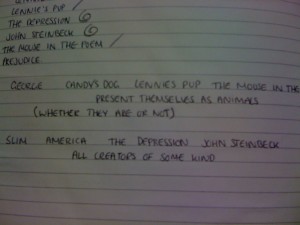 LENNIE'S PUP
THE DEPRESSION
JOHN STEINBECK
THE MOUSE IN THE POEM
PREJUDICE
GEORGE CANDY'S DOG LENNIE'S PUP THE MOUSE IN THE
PRESENT THEMSELVES AS ANIMALS
(WHETHER THEY ARE OR NOT)
SLIM AMERICA THE DEPRESSION JOHN STEINBECK
ALL CREATORS OF SOME KIND